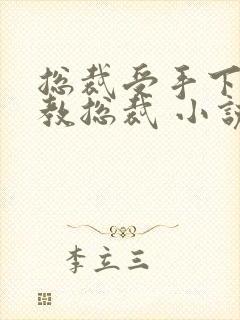 总裁受手下
教总裁 小说
李立三